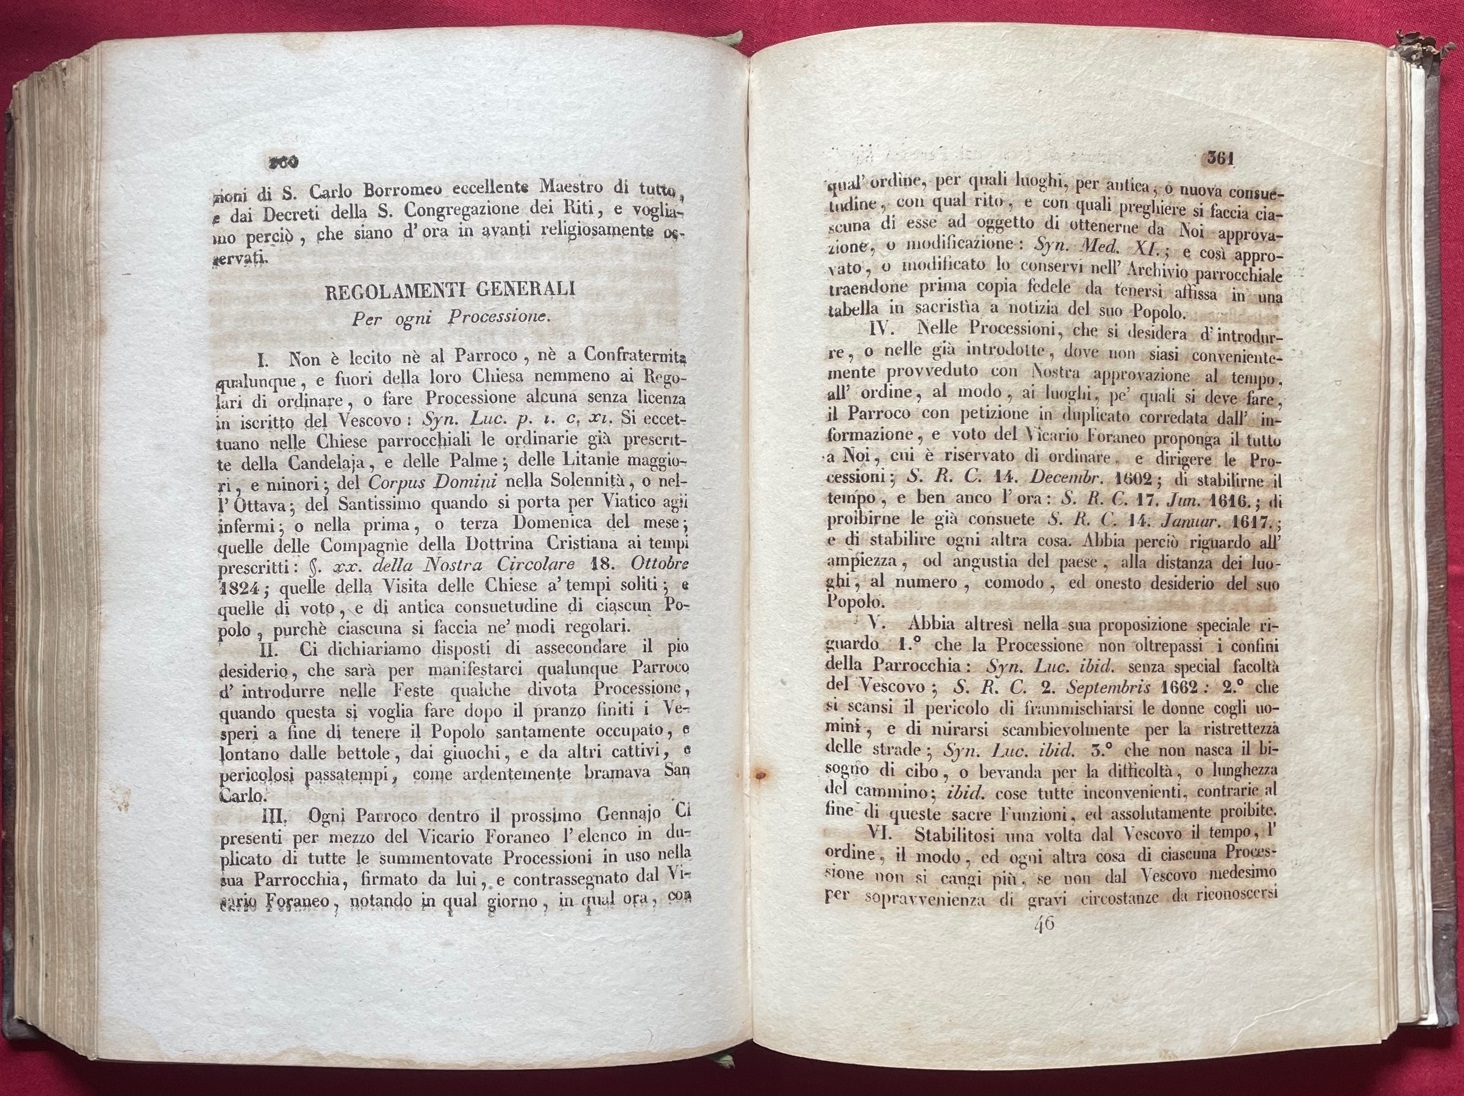 360
zioni di S. Carlo Borromeo eccellente Maestro di tutto,
e dai Decreti della S. Congregazione dei Riti, e voglia-
mo perciò, che siano d'ora in avanti religiosamente os-
servati.
REGOLAMENTI GENERALI
Per ogni Processione.
I. Non è lecito nè al Parroco, nè a Confraternita
qualunque, e fuori della loro Chiesa nemmeno ai Rego-
lari di ordinare, o fare Processione alcuna senza licenza
in iscritto del Vescovo: Syn. Luc. p. 1. c. XI. Si eccet-
tuano nelle Chiese parrocchiali le ordinarie già prescrit-
te della Candelaja, e delle Palme; delle Litanie maggio-
ri, e minori; del Corpus Domini nella Solennità, o nel-
l'Ottava; del Santissimo quando si porta per Viatico agli
infermi; o nella prima, o terza Domenica del mese;
quelle delle Compagnìe della Dottrina Cristiana ai tempi
prescritti: §. xx. della Nostra Circolare 18. Ottobre
1824; quelle della Visita delle Chiese a' tempi soliti; e
quelle di voto, e di antica consuetudine di ciascun Po-
polo, purchè ciascuna si faccia ne' modi regolari.
II. Ci dichiariamo disposti di assecondare il pio
desiderio, che sarà per manifestarci qualunque Parroco
d'introdurre nelle Feste qualche divota Processione,
quando questa si voglia fare dopo il pranzo finiti i Ve-
speri a fine di tenere il Popolo santamente occupato, e
lontano dalle bettole, dai giuochi, e da altri cattivi, e
pericolosi passatempi, come ardentemente bramava San
Carlo.
III. Ogni Parroco dentro il prossimo Gennajo Ci
presenti per mezzo del Vicario Foraneo l'elenco in du-
plicato di tutte le summentovate Processioni in uso nella
sua Parrocchia, firmato da lui, e contrassegnato dal Vi-
cario Foraneo, notando in qual giorno, in qual ora, con
361
qual'ordine, per quali luoghi, per antica, o nuova consue-
tudine, con qual rito, e con quali preghiere si faccia cia-
scuna di esse ad oggetto di ottenerne da Noi approva-
zione, o modificazione: Syn. Med. XI.; e così appro-
vato, o modificato lo conservi nell'Archivio parrocchiale
traendone prima copia fedele da tenersi affissa in una
tabella in sacristìa a notizia del suo Popolo.
IV. Nelle Processioni, che si desidera d'introdur-
re, o nelle già introdotte, dove non siasi conveniente-
mente provveduto con Nostra approvazione al tempo,
all'ordine, al modo, ai luoghi, pe' quali si deve fare,
il Parroco con petizione in duplicato corredata dall'in-
formazione, e voto del Vicario Foraneo proponga il tutto
a Noi, cui è riservato di ordinare, e dirigere le Pro-
cessioni; S. R. C. 14. Decembr. 1602; di stabilirne il
tempo, e ben anco l'ora: S. R. C. 17. Jun. 1616.; di
proibirne le già consuete S. R. C. 14. Januar. 1617.;
e di stabilire ogni altra cosa. Abbia perciò riguardo all'
ampiezza, od angustia del paese, alla distanza dei luo-
ghi, al numero, comodo, ed onesto desiderio del suo
Popolo.
V. Abbia altresì nella sua proposizione speciale ri-
guardo 1.° che la Processione non oltrepassi i confini
della Parrocchia: Syn. Luc. ibid. senza special facoltà
del Vescovo; S. R. C. 2. Septembris 1662: 2.° che
si scansi il pericolo di frammischiarsi le donne cogli uo-
mini, e di mirarsi scambievolmente per la ristrettezza
delle strade; Syn. Luc. ibid. 3.° che non nasca il bi-
sogno di cibo, o bevanda per la difficoltà, o lunghezza
del cammino; ibid. cose tutte inconvenienti, contrarie al
fine di queste sacre Funzioni, ed assolutamente proibite.
VI. Stabilitosi una volta dal Vescovo il tempo, l'
ordine, il modo, ed ogni altra cosa di ciascuna Proces-
sione non si cangi più, se non dal Vescovo medesimo
per sopravvenienza di gravi circostanze da riconoscersi
46